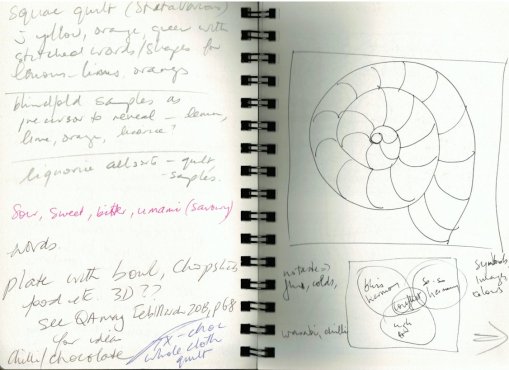 square quilt
yellow, orange, green with
stitched words/shapes for
lemons - limes, orangs
blindfold samples as
precursor to reveal - lemon,
lime, orange, licorice?
liquorice allsorts - quilt
- samples.
Sour, sweet, bitter, umami (savoury)
words.
plate with bowl, chopsticks
food etc. 3D ??
see QA mag Feb/March 208, p68
for idea
chilli/chocolate
choc
whole cloth
quilt
no taste =>
flus, colds,
wasabi, chilli
bliss
harmony
so-so
harmony
conflict
symbols
images
colours